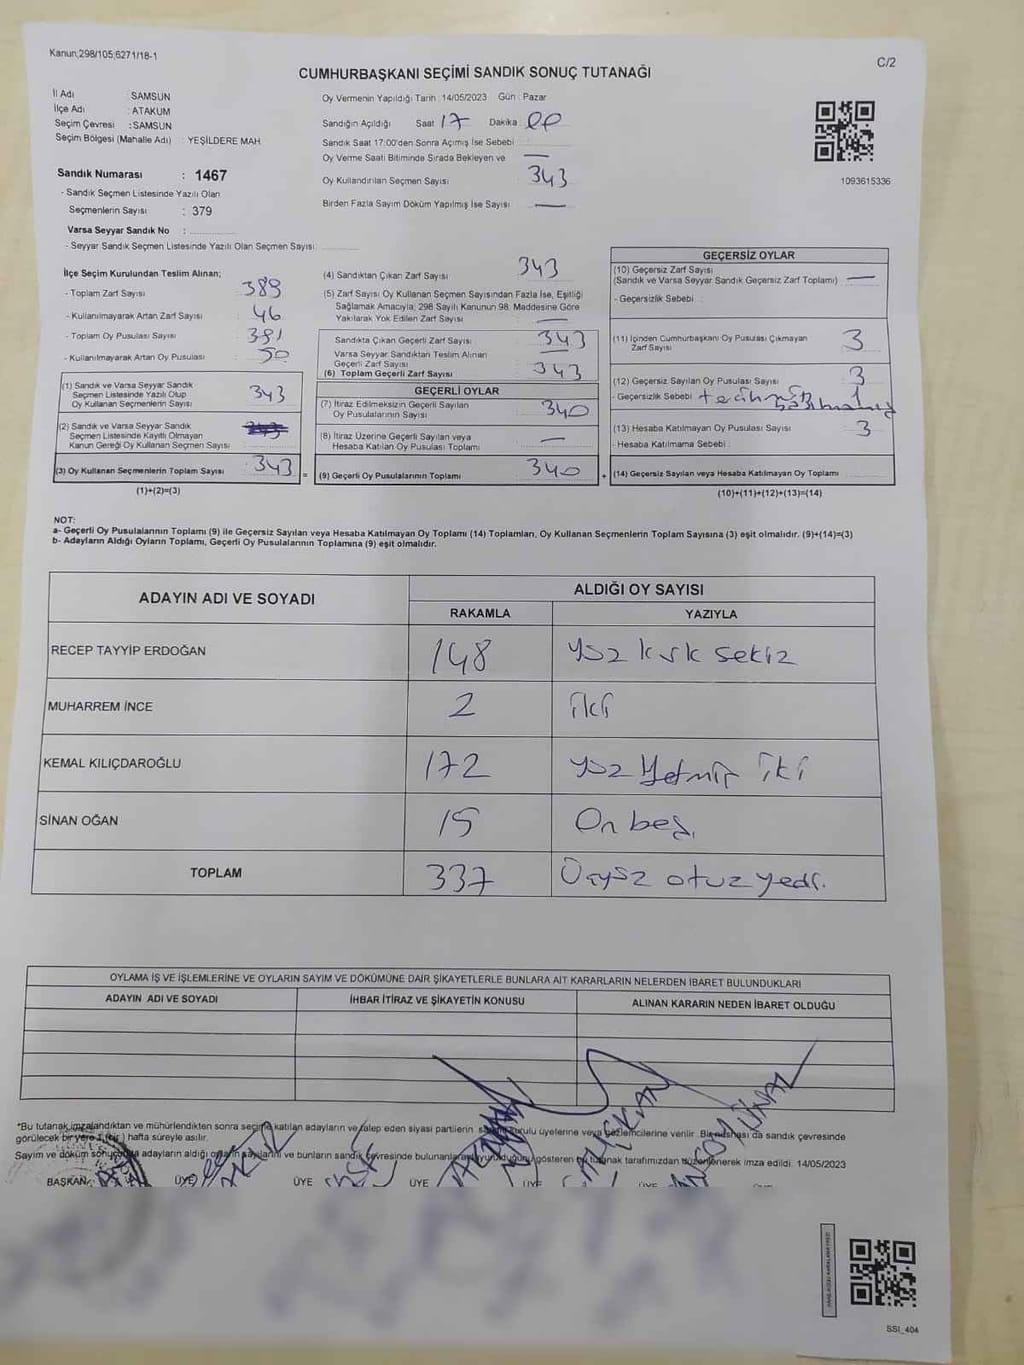 Kanun;298/105;6271/18-1
C/2
CUMHURBAŞKANI SEÇİMİ SANDIK SONUÇ TUTANAĞI
İl Adı SAMSUN
İlçe Adı : ATAKUM
Seçim Çevresi : SAMSUN
Seçim Bölgesi (Mahalle Adı) : YEŞİLDERE MAH
Sandık Numarası : 1467
- Sandık Seçmen Listesinde Yazılı Olan
Seçmenlerin Sayısı : 379
Varsa Seyyar Sandık No :
- Seyyar Sandık Seçmen Listesinde Yazılı Olan Seçmen Sayısı:
Oy Vermenin Yapıldığı Tarih :14/05/2023 Gün : Pazar
Sandığın Açıldığı Saat 17 Dakika
Sandık Saat 17:00'den Sonra Açımış İse Sebebi
Oy Verme Saati Bitiminde Sırada Bekleyen ve —
Oy Kullandırılan Seçmen Sayısı 343
Birden Fazla Sayım Döküm Yapılmış İse Sayısı —
1093615336
İlçe Seçim Kurulundan Teslim Alınan;
- Toplam Zarf Sayısı 389
- Kullanılmayarak Artan Zarf Sayısı : 46
- Toplam Oy Pusulası Sayısı : 381
- Kullanılmayarak Artan Oy Pusulası : 50
(1) Sandık ve Varsa Seyyar Sandık
Seçmen Listesinde Yazılı Olup
Oy Kullanan Seçmenlerin Sayısı 343
(2) Sandık ve Varsa Seyyar Sandık
Seçmen Listesinde Kayıtlı Olmayan
Kanun Gereği Oy Kullanan Seçmen Sayısı
(3) Oy Kullanan Seçmenlerin Toplam Sayısı : 343 =
(1)+(2)=(3)
(4) Sandıktan Çıkan Zarf Sayısı : 343
(5) Zarf Sayısı Oy Kullanan Seçmen Sayısından Fazla İse, Eşitliği
Sağlamak Amacıyla; 298 Sayılı Kanunun 98. Maddesine Göre
Yakılarak Yok Edilen Zarf Sayısı : —
Sandıkta Çıkan Geçerli Zarf Sayısı : 343
Varsa Seyyar Sandıktan Teslim Alınan
Geçerli Zarf Sayısı —
(6) Toplam Geçerli Zarf Sayısı : 343
GEÇERLİ OYLAR
(7) İtiraz Edilmeksizin Geçerli Sayılan
Oy Pusulalarının Sayısı : 340
(8) İtiraz Üzerine Geçerli Sayılan veya
Hesaba Katılan Oy Pusulaları Toplamı : —
(9) Geçerli Oy Pusulalarının Toplamı : 340 +
GEÇERSİZ OYLAR
(10) Geçersiz Zarf Sayısı
(Sandık ve Varsa Seyyar Sandık Geçersiz Zarf Toplamı) : —
- Geçersizlik Sebebi :
(11) İçinden Cumhurbaşkanı Oy Pusulası Çıkmayan
Zarf Sayısı 3
(12) Geçersiz Sayılan Oy Pusulası Sayısı : 3
- Geçersizlik Sebebi :
(13) Hesaba Katılmayan Oy Pusulası Sayısı : 3
- Hesaba Katılmama Sebebi :
(14) Geçersiz Sayılan veya Hesaba Katılmayan Oy Toplamı
(10)+(11)+(12)+(13)=(14)
NOT:
a- Geçerli Oy Pusulalarının Toplamı (9) ile Geçersiz Sayılan veya Hesaba Katılmayan Oy Toplamı (14) Toplamları, Oy Kullanan Seçmenlerin Toplam Sayısına (3) eşit olmalıdır. (9)+(14)=(3)
b- Adayların Aldığı Oyların Toplamı, Geçerli Oy Pusulalarının Toplamına (9) eşit olmalıdır.
ADAYIN ADI VE SOYADI
ALDIĞI OY SAYISI
RAKAMLA YAZIYLA
RECEP TAYYİP ERDOĞAN 148 Yüz kırk sekiz
MUHARREM İNCE 2 iki
KEMAL KILIÇDAROĞLU 172 yüz Yetmiş iki
SİNAN OĞAN 15 On beş.
TOPLAM 337 Üçyüz otuz yedi.
OYLAMA İŞ VE İŞLEMLERİNE VE OYLARIN SAYIM VE DÖKÜMÜNE DAİR ŞİKAYETLERLE BUNLARA AİT KARARLARIN NELERDEN İBARET BULUNDUKLARI
ADAYIN ADI VE SOYADI İHBAR İTİRAZ VE ŞİKAYETİN KONUSU ALINAN KARARIN NEDEN İBARET OLDUĞU
*Bu tutanak imzalandıktan ve mühürlendikten sonra seçime katılan adayların ve talep eden siyasi partilerin sandık kurulu üyelerine veya gözlemcilerine verilir. Bir nüshası da sandık çevresinde
görülecek bir yere 1 (bir) hafta süreyle asılır.
Sayım ve döküm sonucunda adayların aldığı oyların sayılarını ve bunların sandık çevresinde bulunanlara duyurulduğunu gösteren bu tutanak tarafımızdan düzenlenerek imza edildi. 14/05/2023
BAŞKAN ÜYE ÜYE ÜYE ÜYE ÜYE ÜYE
SSI_404